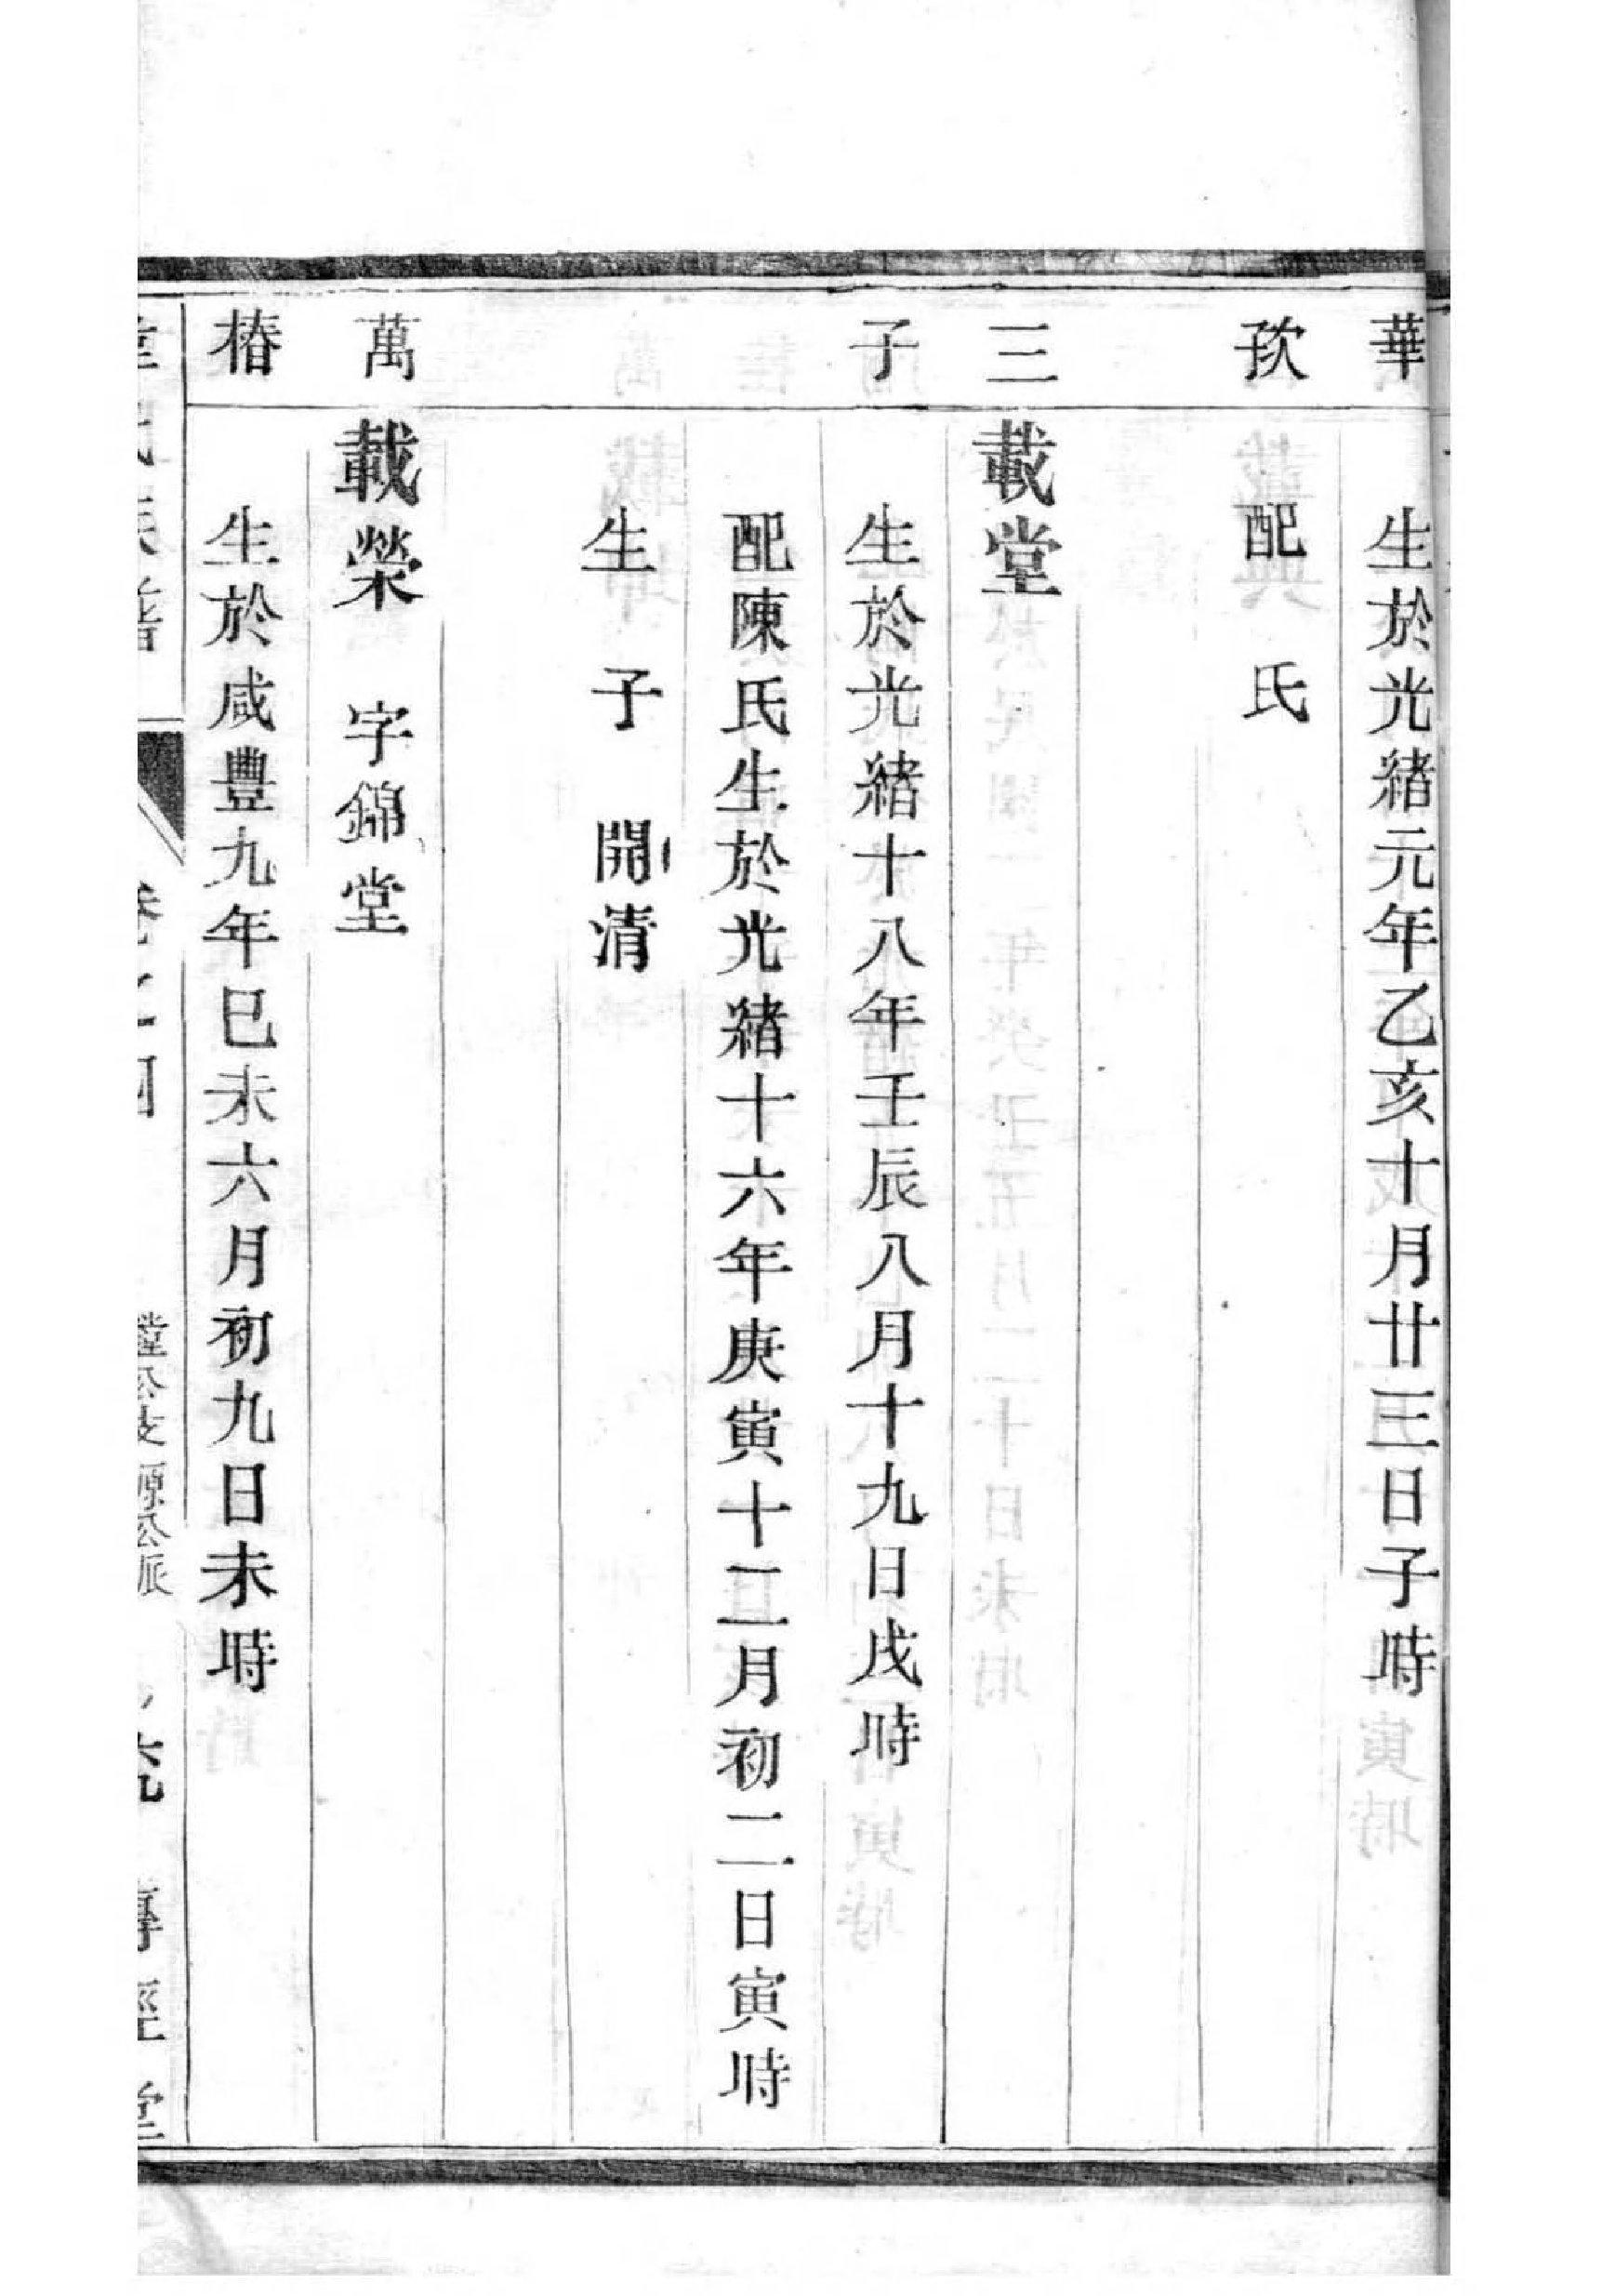 華
生於光緒元年乙亥十月廿三日子時
配　氏
三
載堂
子
生於光緒十八年壬辰八月十九日戌時
配陳氏生於光緒十六年庚寅十二月初二日寅時
生　子　開清
萬
載榮　字錦堂
椿
生於咸豐九年己未六月初九日未時
瑩公支源公派